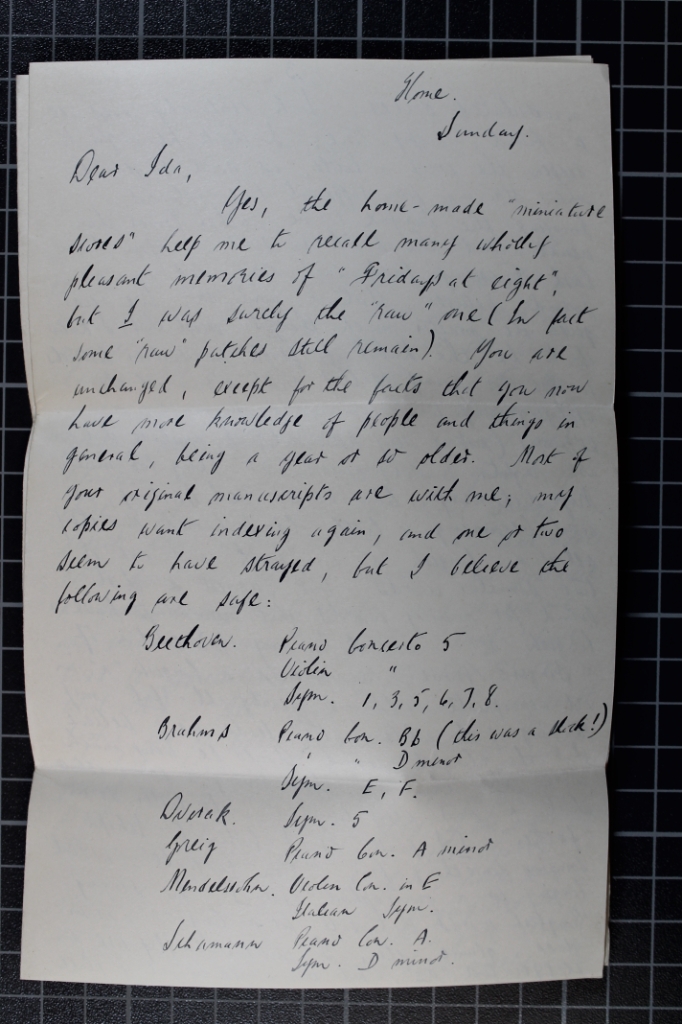 Home.
Sunday.
Dear Ida,
Yes, the home-made "miniature
scores" help me to recall many wholly
pleasant memories of "Fridays at eight",
but I was surely the "raw" one (In fact
some "raw" patches still remain). You are
unchanged, except for the facts that you now
have more knowledge of people and things in
general, being a year or so older. Most of
your original manuscripts are with me; my
copies want indexing again, and one or two
seem to have strayed, but I believe the
following are safe:
Beethoven. Piano Concerto 5
Violin "
Sym. 1, 3, 5, 6, 7, 8.
Brahms Piano Con. Bb (this was a stick!)
" " D minor
Sym. E, F.
Dvorak. Sym. 5
Greig Piano Con. A minor
Mendelssohn. Violin Con. in E
Italian Sym.
Schumann Piano Con. A.
Sym. D minor.